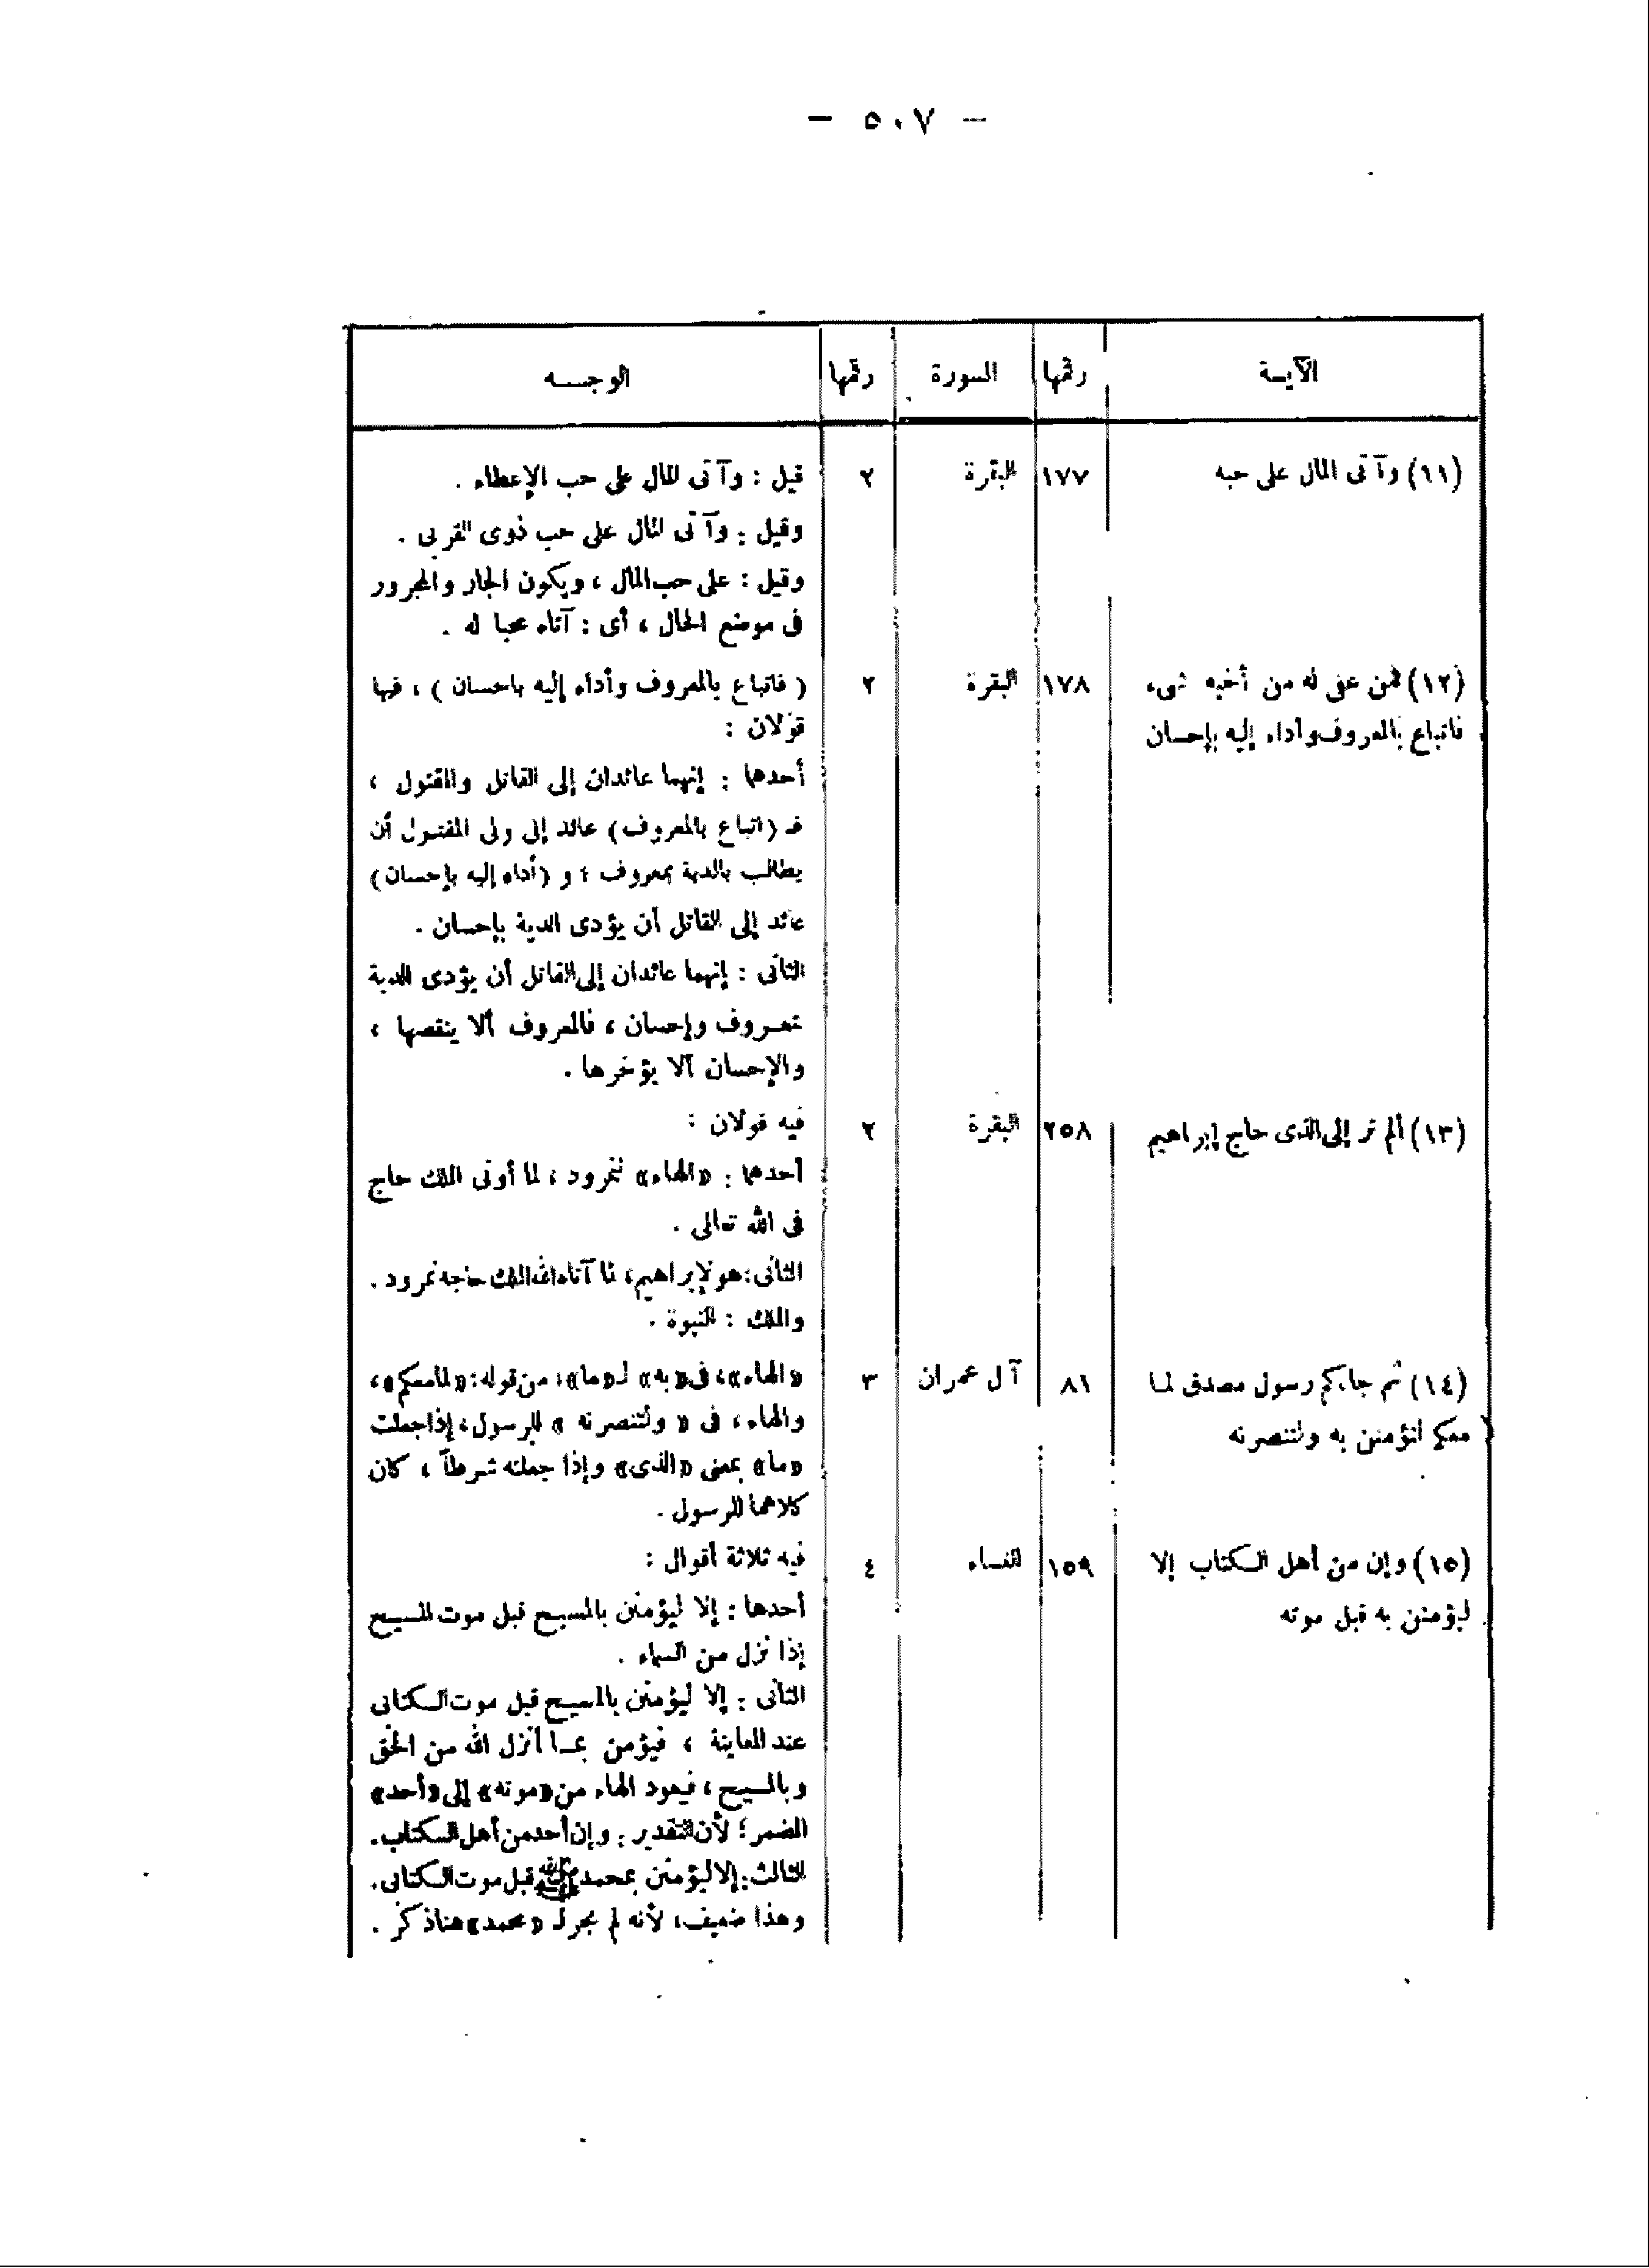 — ٥٠٧ —
الآيـة رقمها السورة رقمها الوجـــه
(١١) وآتى المال على حبه ١٧٧ البقرة ٢ قيل : وآتى المال على حب الإعطاء .
وقيل : وآتى المال على حب ذوى القربى .
وقيل : على حب المال ، ويكون الجار والمجرور
فى موضع الحال ، أى : آتاه محبا له .
(١٢) فمن عفى له من أخيه شىء ١٧٨ البقرة ٢ ( فاتباع بالمعروف وأداء إليه باحسان ) ، فيها
فاتباع بالمعروف وأداء إليه بإحسان قولان :
أحدهما : إنهما عائدان إلى القاتل والمقتول ،
فـ (اتباع بالمعروف) عائد إلى ولى المقتـول أن
يطالب بالدية بمعروف ؛ و (أداء إليه بإحسان)
عائد إلى القاتل أن يؤدى الدية بإحسان .
الثانى : إنهما عائدان إلى القاتل أن يؤدى الدية
بمعـروف وإحسان ، فالمعروف ألا ينقصها ،
والإحسان ألا يؤخرها .
(١٣) ألم تر إلى الذى حاج إبراهيم ٢٥٨ البقرة ٢ فيه قولان :
أحدهما : «الهاء» لنمرود ، لما أوتى الملك حاج
فى الله تعالى .
الثانى : هو لإبراهيم ، لما آتاه الله الملك حاجه نمرود .
والملك : النبوة .
(١٤) ثم جاءكم رسول مصدق لمـا ٨١ آل عمران ٣ «الهاء» ، فى «به» لـ «ما» ، من قوله : «لما معكم» ،
معكم لتؤمنن به ولتنصرنه والهاء ، فى « ولتنصرنه » للرسول ، إذا جعلت
«ما» بمعنى «الذى» وإذا جعلته شرطاً ، كان
كلاهما للرسول .
(١٥) وإن من أهل الـكتاب إلا ١٥٩ النسـاء ٤ فيه ثلاثة أقوال :
ليؤمنن به قبل موته أحدها : إلا ليؤمنن بالمسيح قبل موت المسيـح
إذا نزل من السماء .
الثانى : إلا ليؤمنن بالمسيـح قبل موت الـكتابى
عند المعاينة ، فيؤمن بمـا أنزل الله من الحق
وبالمسيح ، فيعود الهاء من «موته» إلى «أحد»
المضمر ؛ لأن التقدير : وإن أحد من أهل الـكتاب .
الثالث : إلا ليؤمنن بمحمد ﷺ قبل موت الـكتابى .
وهذا ضعيف ، لأنه لم يجر لـ «محمد» هنا ذكر .